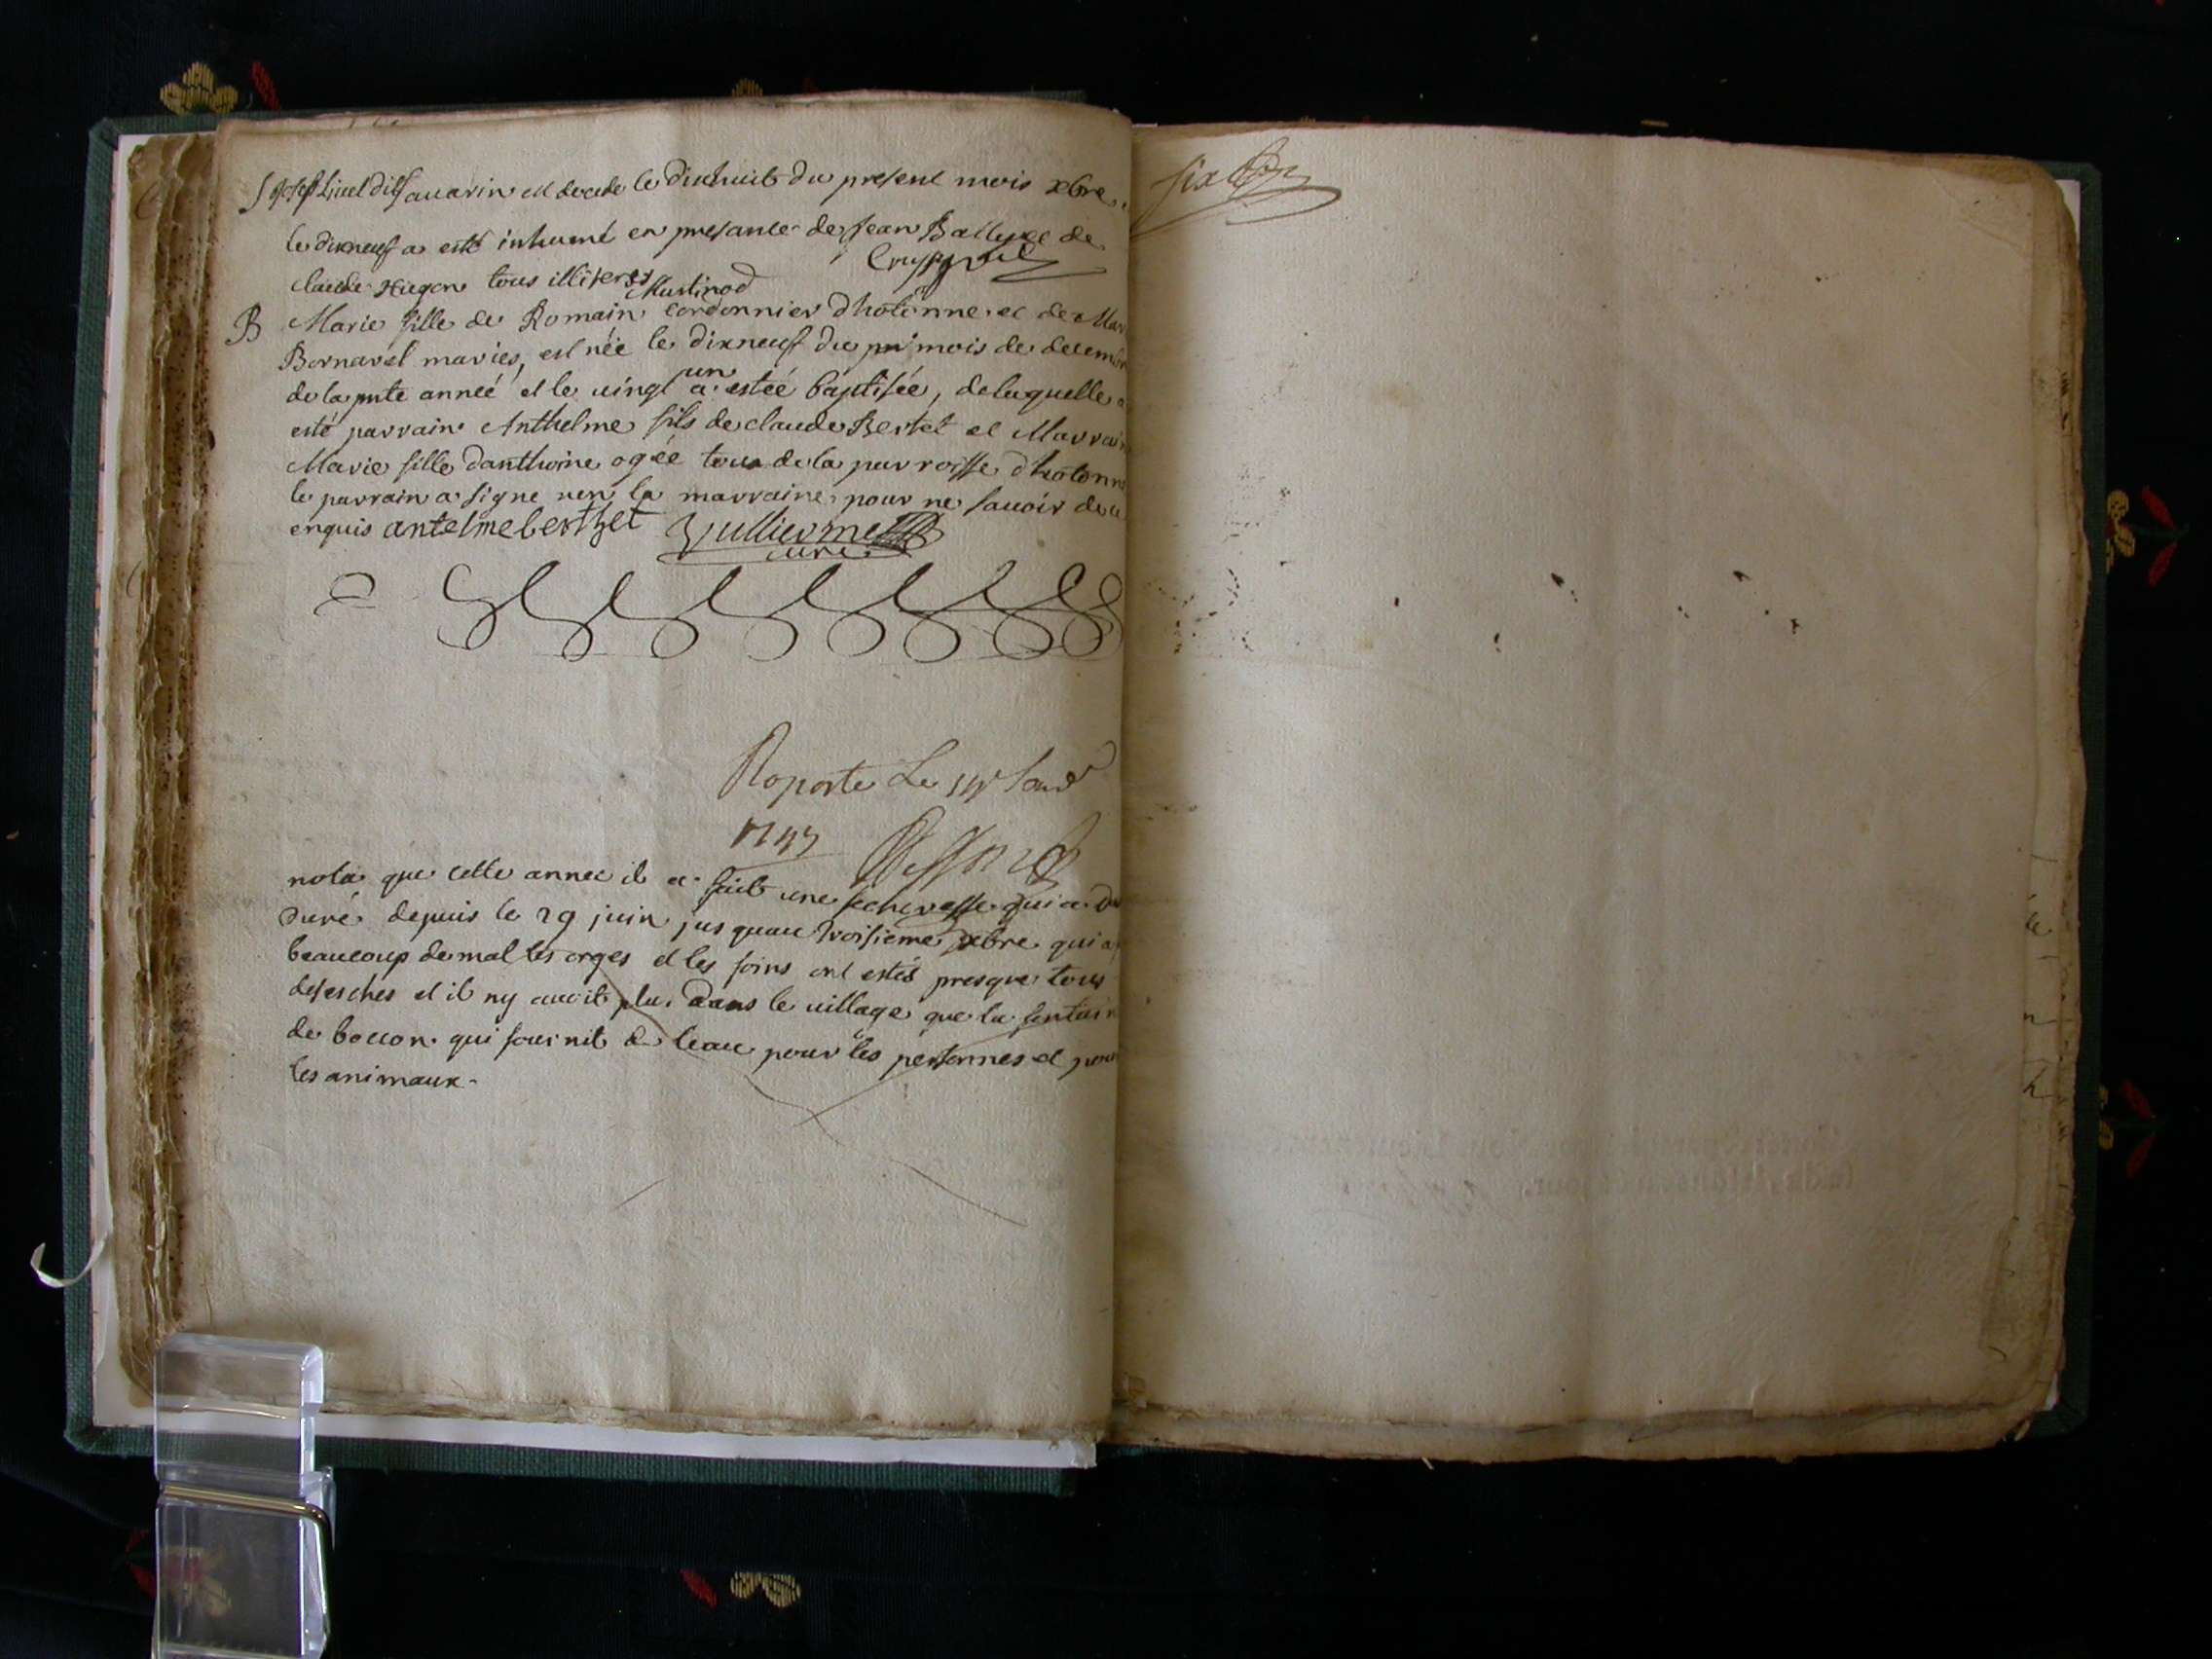 Joseph Livel dit Savarin est decede le dixhuit du present mois xbre
le dixneuf a esté inhumé en presance de Jean Ballyxe de
claude tous illiterez
Martinod
B Marie fille de Romain cordonnier dhotonne et de Mar
Bornarel mariés, est née le dixneuf du pnt mois de decembre
de la pnte anneé et le vingt un a esteé baptisée, de laquelle a
esté parrain Anthelme fils de claude Bertet et Marrain
Marie fille danthoine ogée tous de la parroisse dhotonne
le parrain a signe non la marraine pour ne savoir de ce
enquis antelme berthet Vulliermet
curé
Raporte Le
nota que cette anneé il a fait une secheresse qui a
duré depuis le 29 juin jus quau troisieme xbre qui a
beaucoup de mal les orges et les foins ont estés presque tous
deseschés et il ny avoit plu dans le village que la fontain
de bocon qui fournit de leau pour les personnes et pour
les animaux.
six